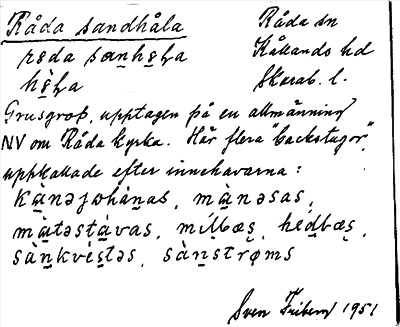 Råda sandhåla
Råda sn
reda sanheḷa
Kållands hd
heḷa
Skarab. l.
Grusgrop, upptagen på en allmänning
NV om Råda kyrka. Här flera "backstugor",
uppkallade efter innehavarna:
kànəjohànas, mànəsas,
màtəstàvas, mílbæs, hédbæs,
sànkvéstəs, sànstrøms
Sven Friberg 1951